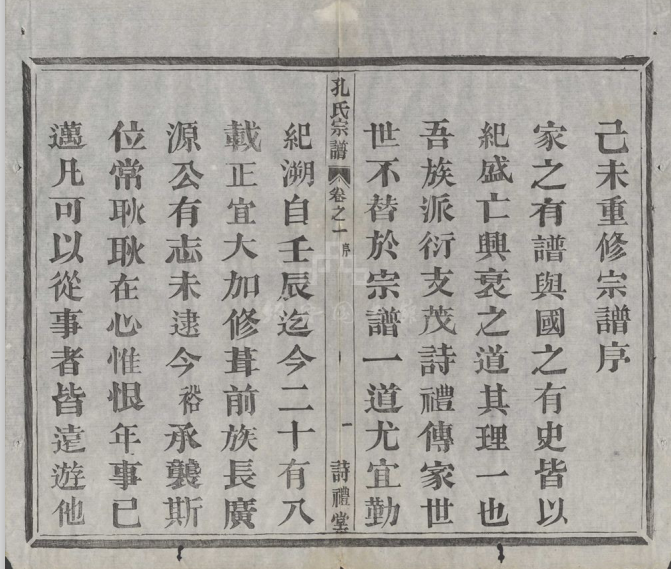 己未重修宗譜序
家之有譜與國之有史皆以
紀盛亡興衰之道其理一也
吾族派衍支茂詩禮傳家世
世不替於宗譜一道尤宜勤
孔氏宗譜 卷之一 序 一 詩禮堂
紀溯自壬辰迄今二十有八
載正宜大加修葺前族長廣
源公有志未逮今裕承襲斯
位常耿耿在心惟恨年事已
邁凡可以從事者皆遠遊他